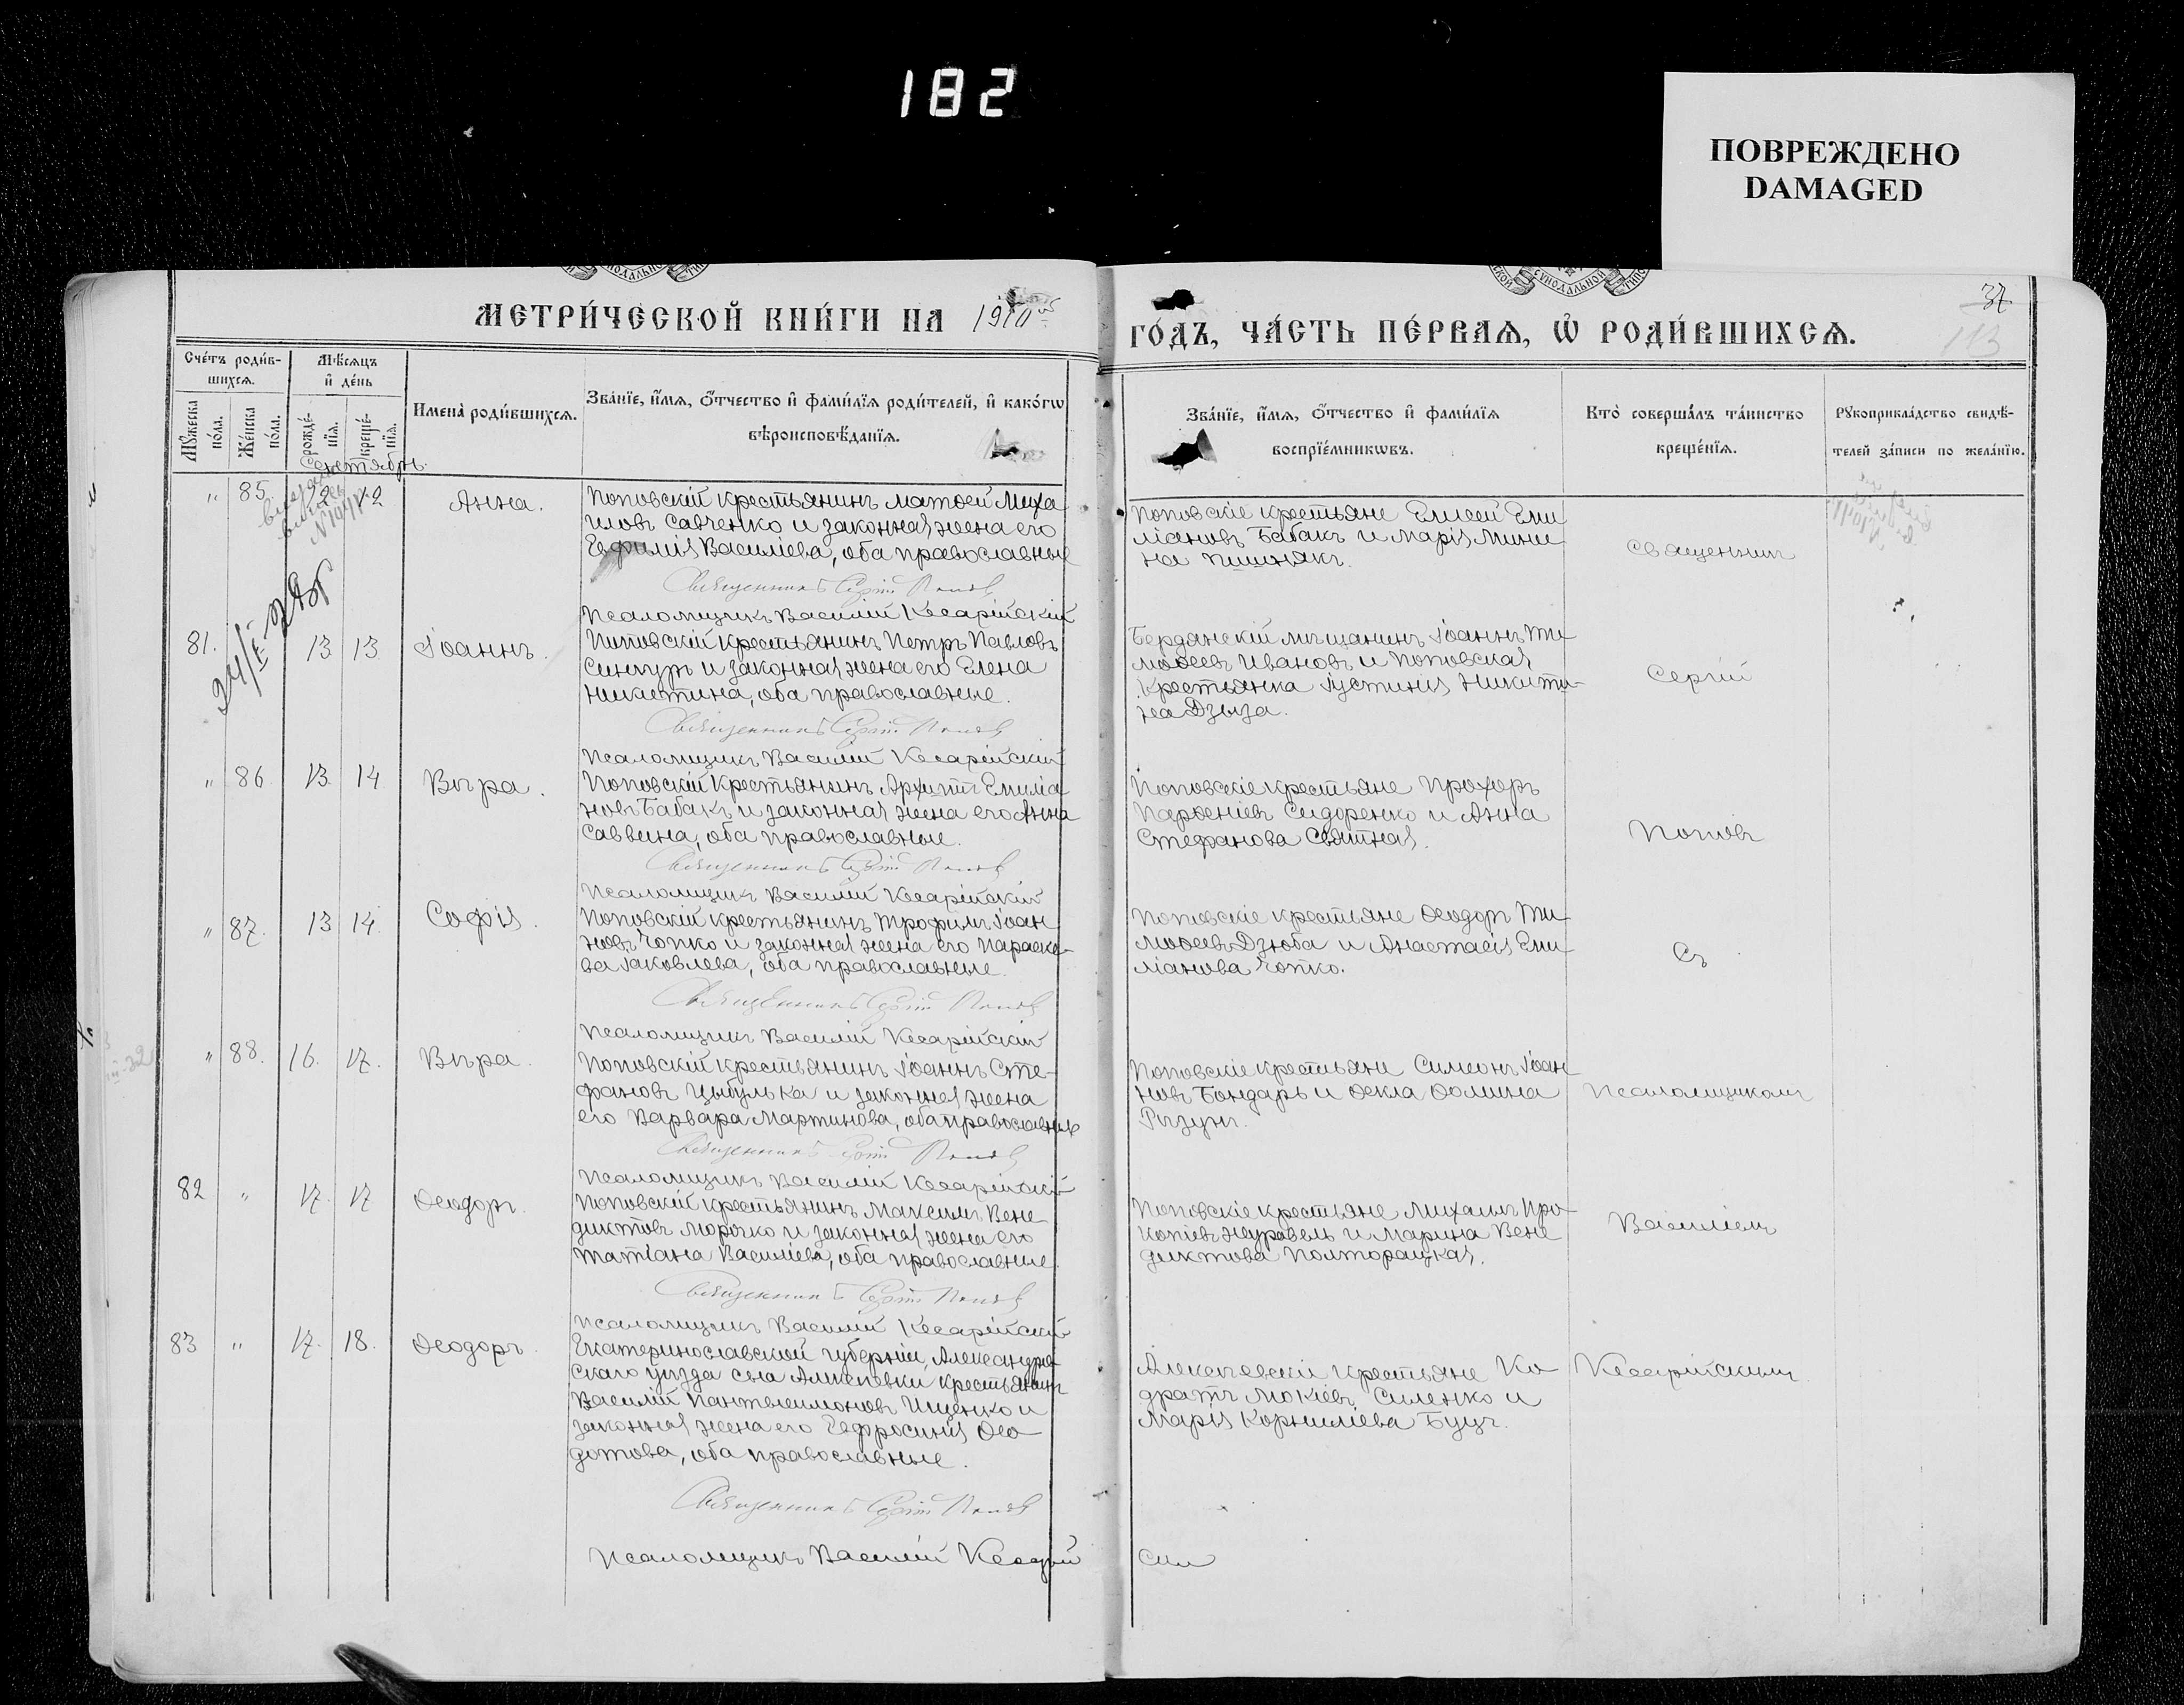 182
ПОВРЕЖДЕНО
DAMAGED
МЕТРИ́ЧЕСКОЙ КНИ́ГИ НА 1910
ГО́ДЪ, ЧА́СТЬ ПЕ́РВАѦ, Ѡ РОДИ́ВШИХСѦ.
37
113
Сче́тъ роди́в-
шихсѧ.
Мѣ́сѧцъ
и де́нь
Мꙋ́жеска
по́ла.
Же́нска
по́ла.
рожде́-
нїѧ.
креще́-
нїѧ.
Имена̀ роди́вшихсѧ.
Зва́нїе, и́мѧ, о́тчество и фами́лїѧ роди́телей, и како́гѡ
вѣроисповѣ́данїѧ.
Зва́нїе, и́мѧ, о́тчество и фами́лїѧ
воспрїе́мникѡвъ.
Кто̀ соверша́лъ та́инство
креще́нїѧ.
Рꙋкоприкла́дство свидѣ́-
телей за́писи по жела́нїю.
Сентябрь.
" 85. 12 12 Анна.
Поповскій крестьянинъ Матѳей Миха
иловъ Савченко и законная жена его
Евфимія Василіева, оба православные
Священникъ Сергій Поповъ
Псаломщикъ Василій Кесарійскій
Поповскіе крестьяне Елисей Еми
ліановъ Бабакъ и Марія Мини
на Пшнякъ.
Священникъ
24/I
81. 13 13 Іоаннъ.
Поповскій крестьянинъ Петръ Павловъ
Синчуръ и законная жена его Елена
Никитина, оба православные.
Священникъ Сергій Поповъ
Псаломщикъ Василій Кесарійскій
Бердянскій мѣщанинъ Іоаннъ Ти
моѳеевъ Ивановъ и Поповская
крестьянка Іустинія Никити-
на Дзыза.
Сергій
" 86 13. 14 Вѣра.
Поповскій крестьянинъ Архипъ Емиліа
новъ Бабакъ и законная жена его Анна
Саввина, оба православные.
Священникъ Сергій Поповъ
Псаломщикъ Василій Кесарійскій
Поповскіе крестьяне Прохоръ
Парѳеніевъ Сидоренко и Анна
Стефанова Свѣтная.
Поповъ
" 87. 13 14. Софія.
Поповскій крестьянинъ Трофимъ Іоан
новъ Чопко и законная жена его Параске-
ва Іаковлева, оба православные.
Священникъ Сергій Поповъ
Псаломщикъ Василій Кесарійскій
Поповскіе крестьяне Ѳеодоръ Ти
моѳеевъ Дзюба и Анастасія Еми
ліанова Чопко.
Съ
" 88. 16. 17. Вѣра.
Поповскій крестьянинъ Іоаннъ Сте-
фановъ Цыбулька и законная жена
его Варвара Мартинова, оба православные
Священникъ Сергій Поповъ
Псаломщикъ Василій Кесарійскій
Поповскіе крестьяне Симеонъ Іоан
новъ Бондарь и Ѳекла Ѳомина
Рѣзунъ.
Псаломщикомъ
82 " 17. 17 Ѳеодоръ.
Поповскій крестьянинъ Максимъ Вене
диктовъ Морочко и законная жена его
Татіана Василіева, оба православные.
Священникъ Сергій Поповъ
Псаломщикъ Василій Кесарійскій
Поповскіе крестьяне Михаилъ Про-
копіевъ Журавель и Марина Вене
диктова Полторацкая.
Василіемъ
83 " 17. 18. Ѳеодоръ.
Екатеринославской губерніи, Александров
скаго уѣзда села Алексѣевки крестьянинъ
Василій Пантелеимоновъ Ищенко и
законная жена его Евфросинія Ѳео-
дотова, оба православные.
Священникъ Сергій Поповъ
Псаломщикъ Василій Кесарій
скій
Алексѣевскіе крестьяне Ко-
дратъ Мокіевъ Силенко и
Марія Корниліева Буцъ.
Кесарійскимъ